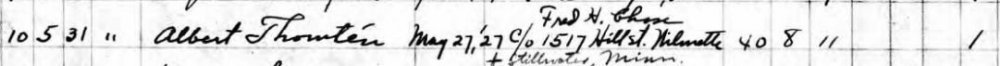 Fred H. Chase
10 5 31 " Albert Thornten May 27, '27 c/o 1517 Hill st. Wilmette 40 8 " 1
+ Stillwater, Minn.